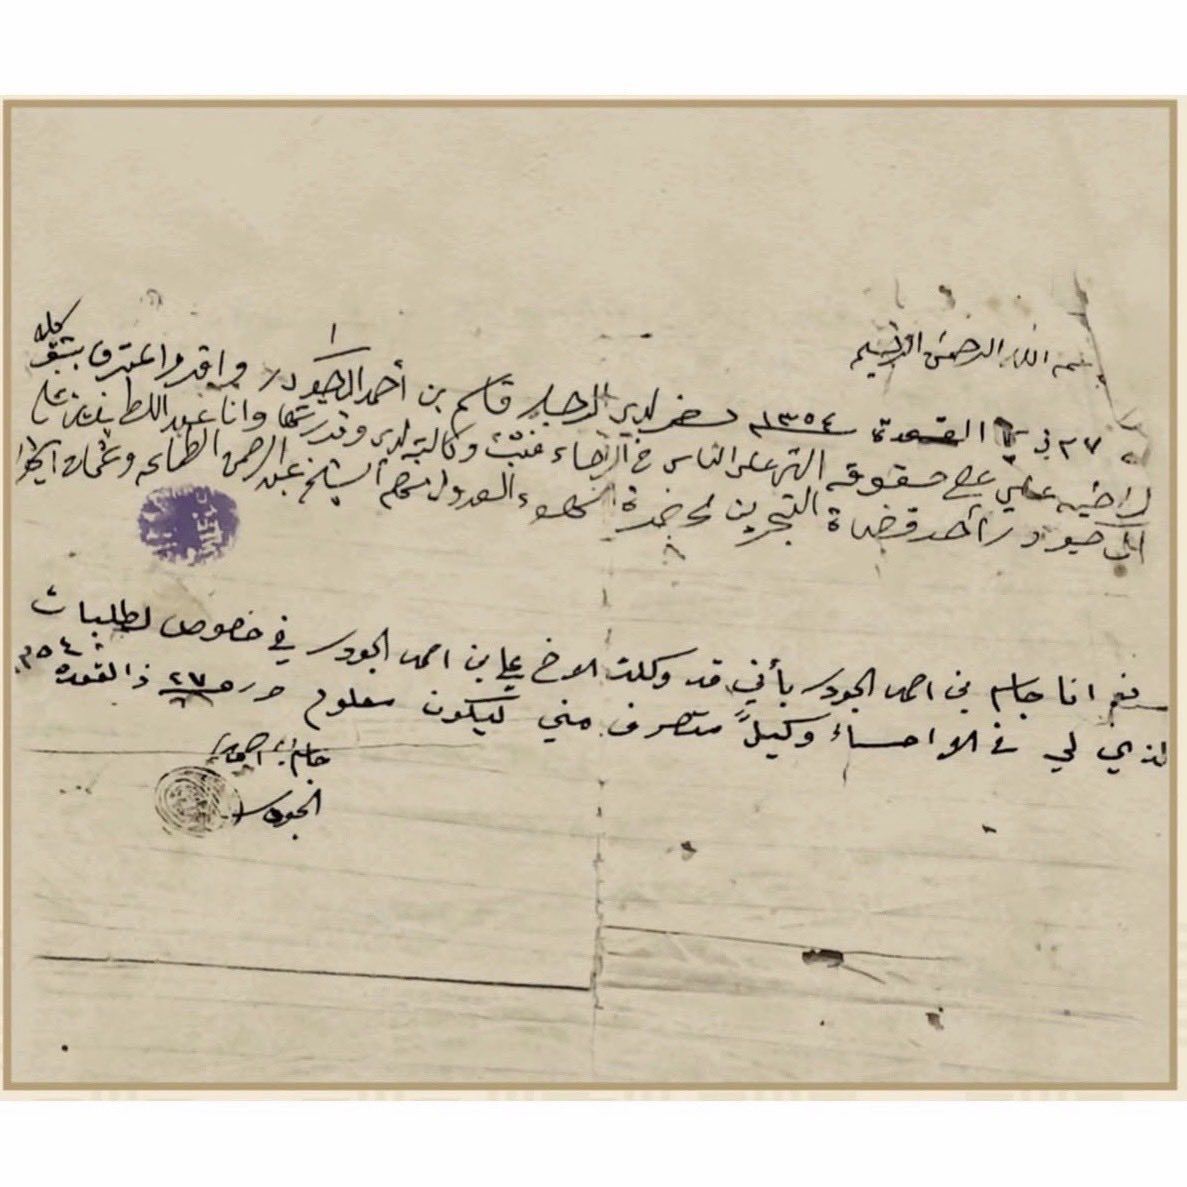 بسم الله الرحمن الرحيم
٢٧ في القعدة ١٣٥٤ حضر لدي الرجل قاسم بن أحمد الجودر واقر واعترف بتوكيله
لأخيه علي على حقوقه التي على الناس في الاحساء فثبتت وكالته لدي وقد رسمتها وانا عبد اللطيف بن علي
الجودر أحد قضاة البحرين لمحضرة الشهود العدول منهم الشيخ عبد الرحمن
نعم انا جاسم بن احمد الجودر بأني قد وكلت الاخ علي بن احمد الجودر في خصوص لطلبات
لذي لي في الاحساء وكيلاً متصرف مني ليكون معلوم حرر ٢٧ ذا القعدة ٣٥٤
جاسم بن احمد
الجودر